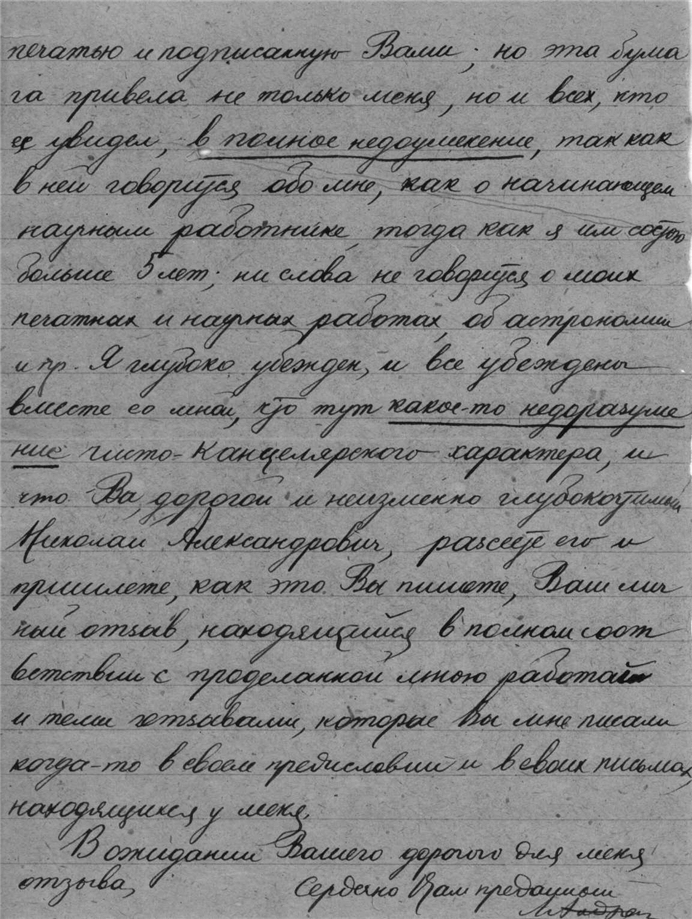 печатью и подписанную Вами; но эта бума
га привела не только меня, но и всех, кто
ее увидел, в полное недоумение, так как
в ней говорится обо мне, как о начинающем
научным работнике, тогда как я им состою
больше 5 лет; ни слова не говорится о моих
печатных и научных работах, об астрономии
и пр. Я глубоко убежден, и все убеждены
вместе со мной, что тут какое-то недоразуме
ние чисто-канцелярского характера, и
что Вы, дорогой и неизменно глубокочтимый
Николай Александрович, рассеете его и
пришлете, как это Вы пишете, Ваш лич
ный отзыв, находящийся в полном соот
ветствии с проделанной мною работой
и теми отзывами, которые Вы мне писали
когда-то в своем предисловии и в своих письмах,
находящихся у меня.
В ожидании Вашего дорогого для меня
отзыва, Сердечно Вам преданный